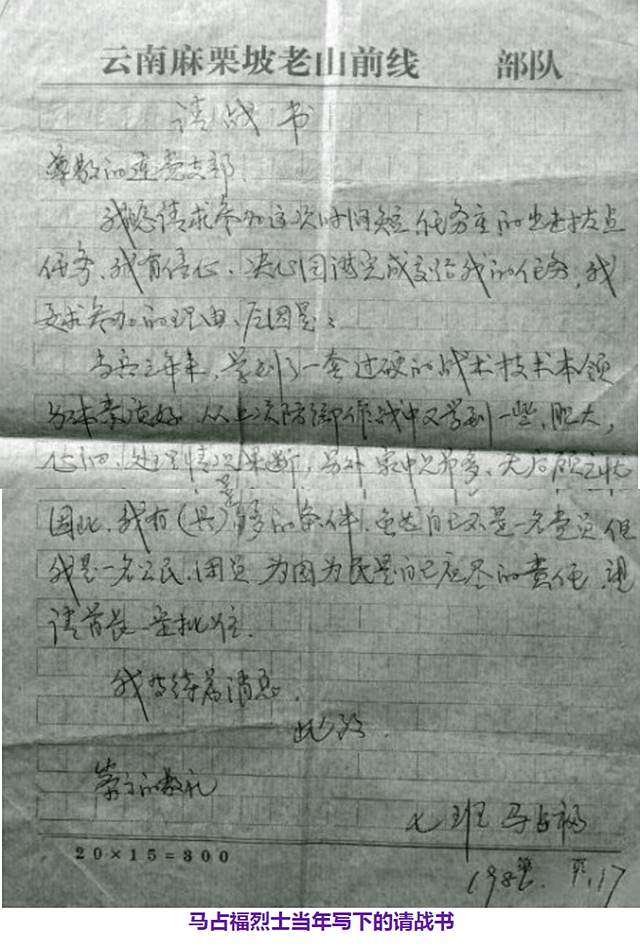 云南麻栗坡老山前线 部队
请战书
尊敬的连党支部
我恳请求参加这次时间短任务重的出击拔点
任务,我有信心、决心圆满完成交给我的任务,我
要求参加的理由、原因是:
当兵三年来,学到了一套过硬的战术技术本领
身体素质好,从上次防御作战中又学到一些,胆大,
心细,处理情况果断,另外家中兄弟多,无后顾之忧
因此,我有(具)备够的条件,虽然自己不是一名党员但
我是一名公民、团员,为国为民是自己应尽的责任,望
请首长一定批准.
我等待着消息.
此致
崇高的敬礼
七班 马占福
198 .17
20×15=300
第 页
马占福烈士当年写下的请战书